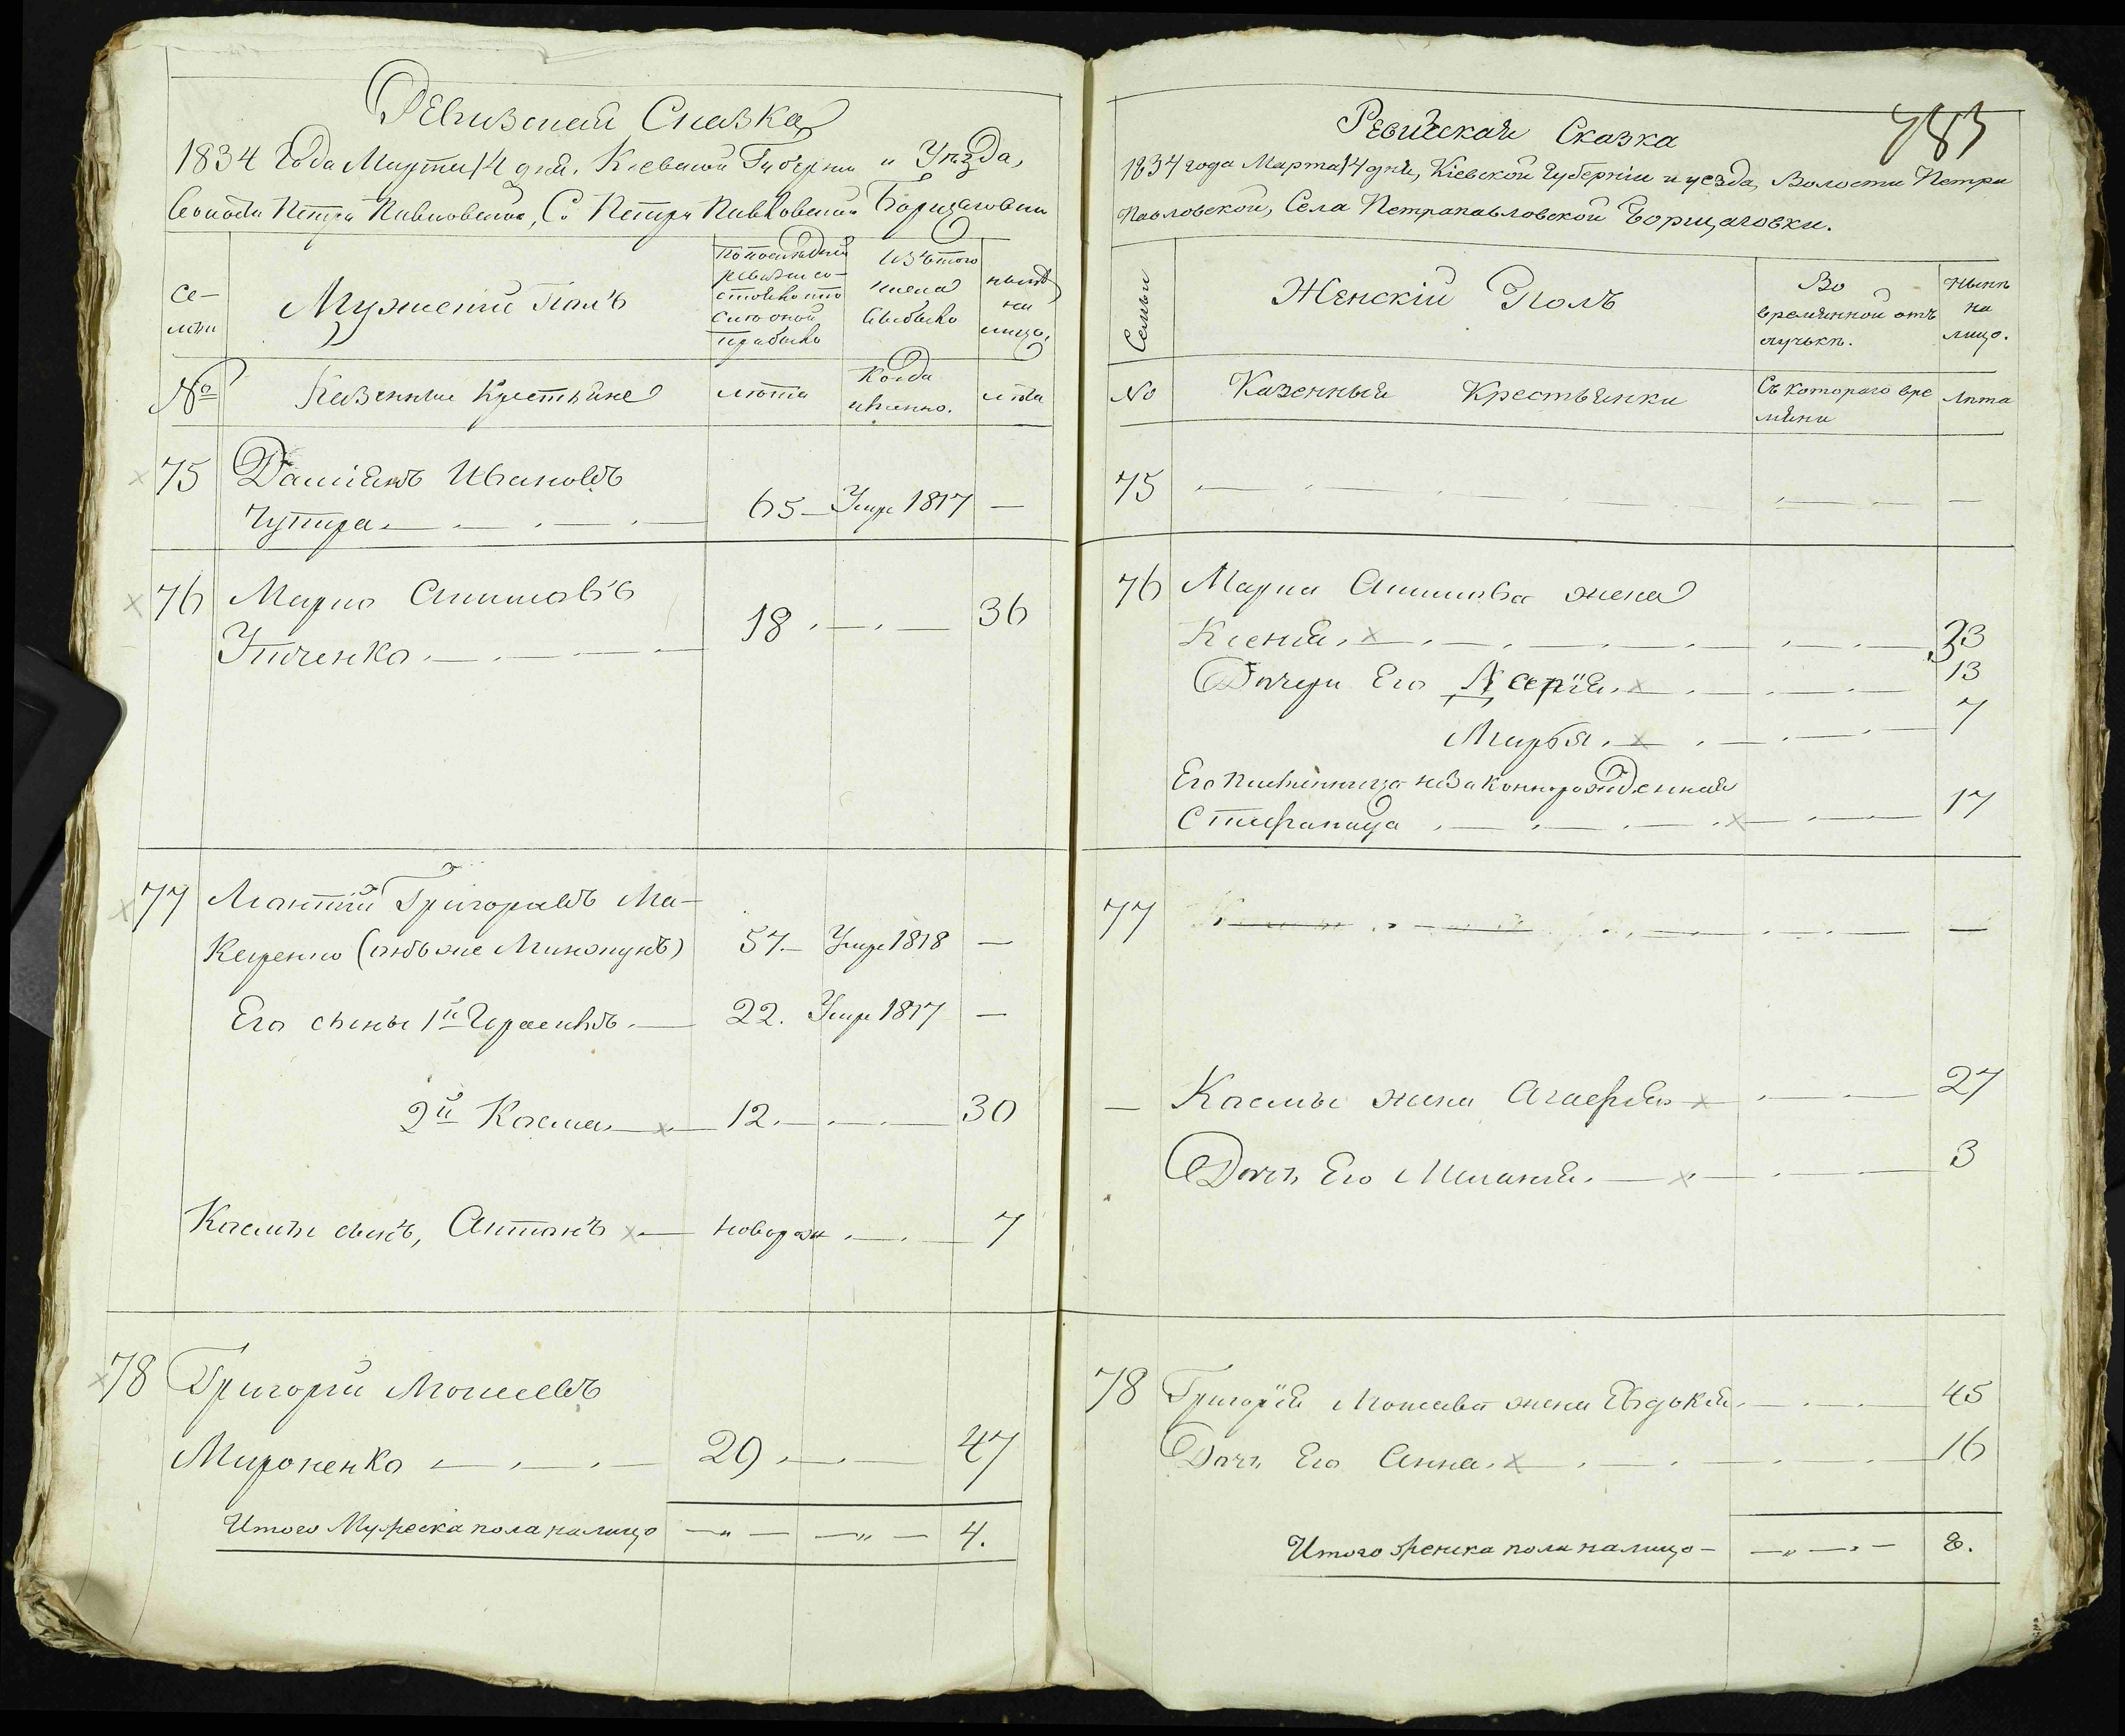 Ревизская Сказка
1834 Года Марта 14 дня. Киевской Губернии и Уѣзда,
Волости Петра Павловской, С. Петра Павловской Борщаговки
Се-
мьи
Мужеский Полъ
По последней
ревизии со-
стояло и по
слѣ оной
прибыло
Изъ того
числа
выбыло
нынѣ
на
лицо.
№
Казенные Крестьяне
лѣта
Когда
имянно.
лѣта
75 Даміянъ Ивановъ
Чупира 65 Умре 1817 —
76 Марко Антиповъ
Ютченко 18 36
77 Леонтий Григорьевъ Ма-
каренко (онъ же Миножукъ) 57 Умре 1818 —
Его сыны 1й Герасимъ 22. Умре 1817 —
2й Косма 12 30
Космы сынъ, Антонъ новорож 7
78 Григорій Моисеевъ
Мироненко 29 47
Итого Мужеска пола налицо 4.
783
Ревизская Сказка
1834 года Марта 14 дня, Кіевской губерніи и уезда, Волости Петра
Павловской, Села Петрапавловской Борщаговки.
Семьи
Женскій Полъ
Во
временной отъ
лучькѣ.
Нынѣ
на
лицо.
No
Казенныя Крестьянки
Съ котораго вре
мяни
Лѣта
75
76 Марка Антипова жена
Ксенія 33
Дочери Его Дарія 13
Марья 7
Его племянница незаконнорожденная
Стефанида 17
77
— Космы жена Агаефия 27
Дочь Его Меланія 3
78 Григорія Моисеева жена Евдокія 45
Дочь Его Анна 16
Итого женска пола налицо 8.